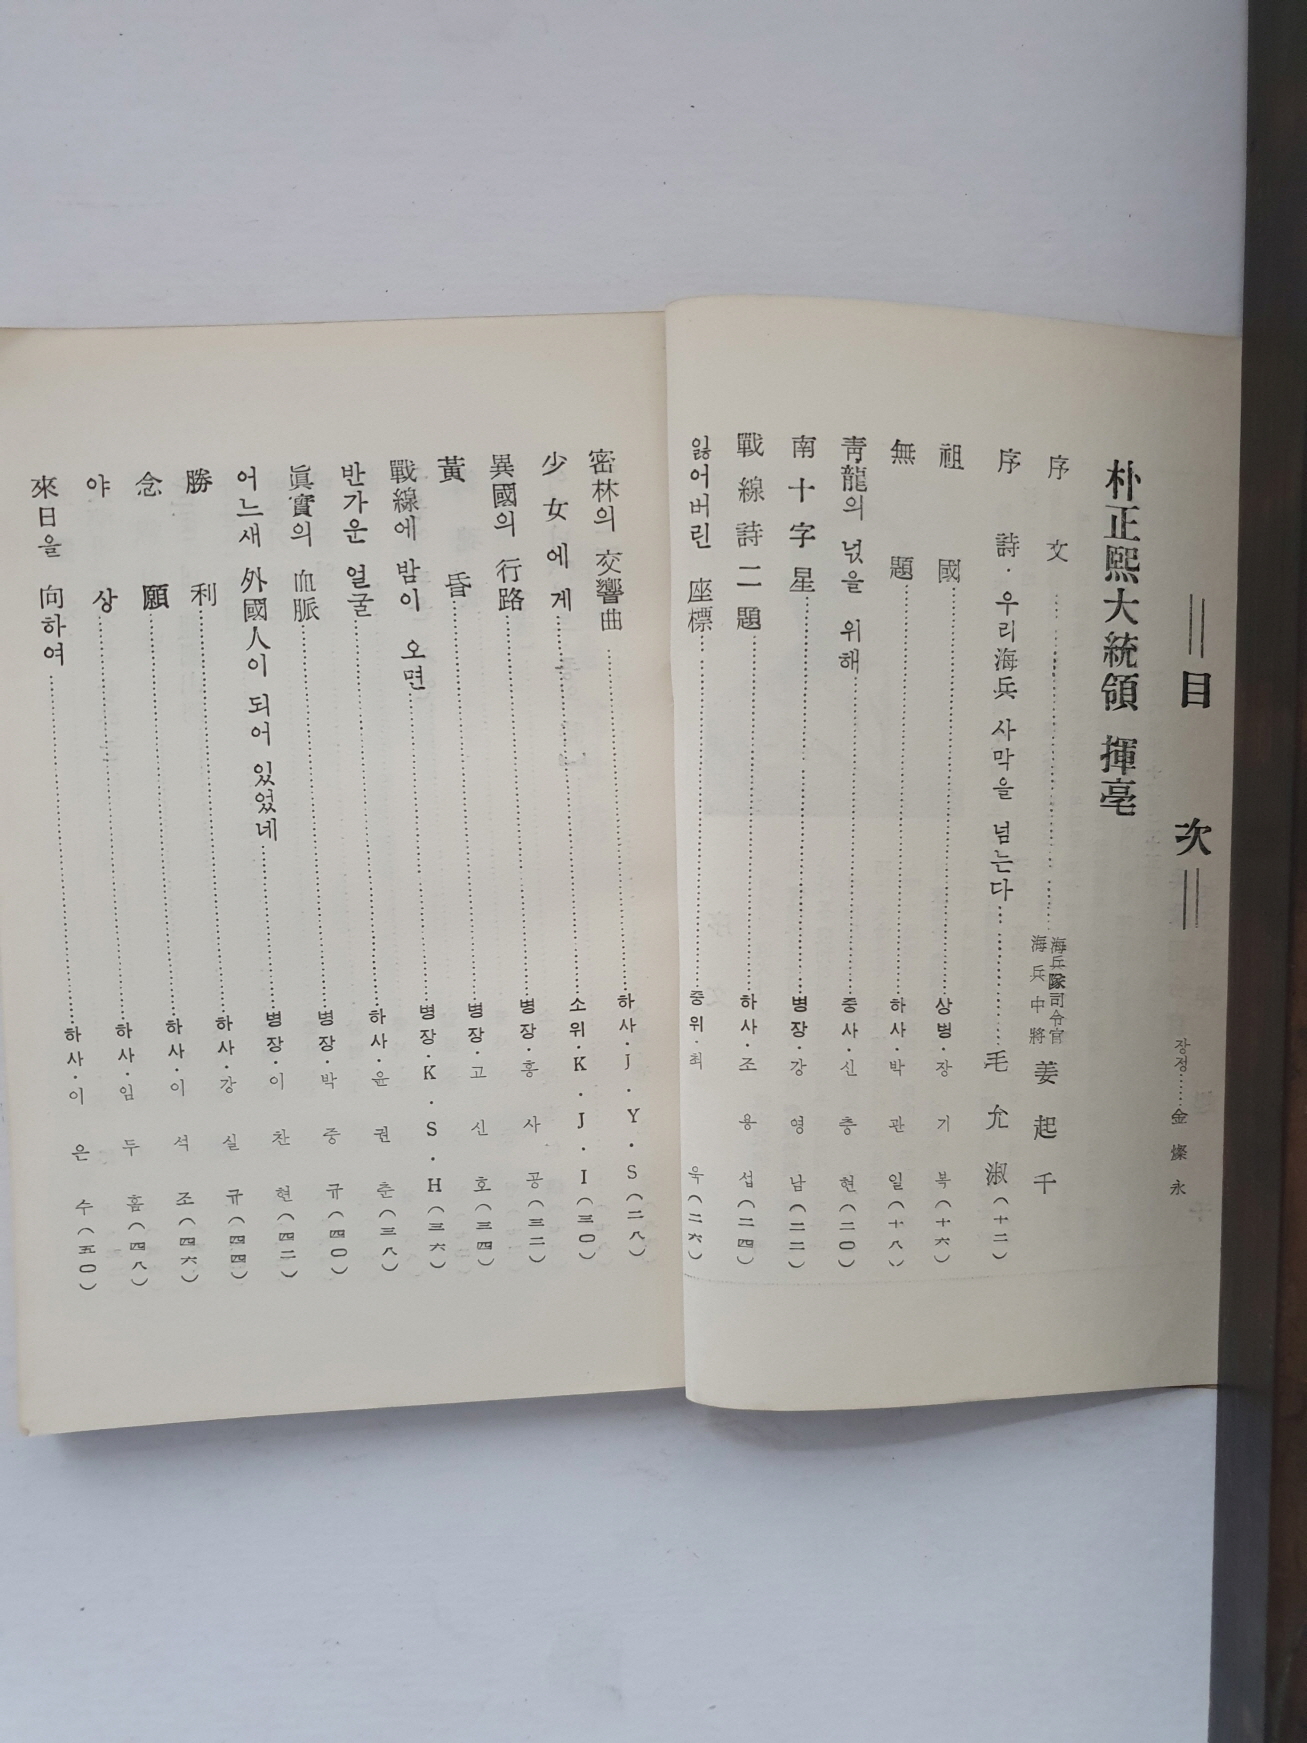 目 次
장정……金燦永
朴正熙大統領 揮毫
序文……海兵隊司令官 海兵中將 姜起千
序詩·우리海兵 사막을 넘는다……毛允淑(十二)
祖國……상병·장기복(十六)
無題……하사·박관일(十八)
靑龍의 넋을 위해……중사·신충현(二〇)
南十字星……병장·강영남(二二)
戰線詩二題……하사·조용섭(二四)
잃어버린 座標……중위·최욱(二六)
密林의 交響曲……하사·J·Y·S(二八)
少女에게……소위·K·J·I(三〇)
異國의 行路……병장·홍사공(三二)
黃昏……병장·고신호(三四)
戰線에 밤이 오면……병장·K·S·H(三六)
반가운 얼굴……하사·윤권춘(三八)
眞實의 血脈……병장·박중규(四〇)
어느새 外國人이 되어 있었네……병장·이찬현(四二)
勝利……하사·강실규(四四)
念願……하사·이석조(四六)
야상……하사·임두흠(四八)
來日을 向하여……하사·이은수(五〇)